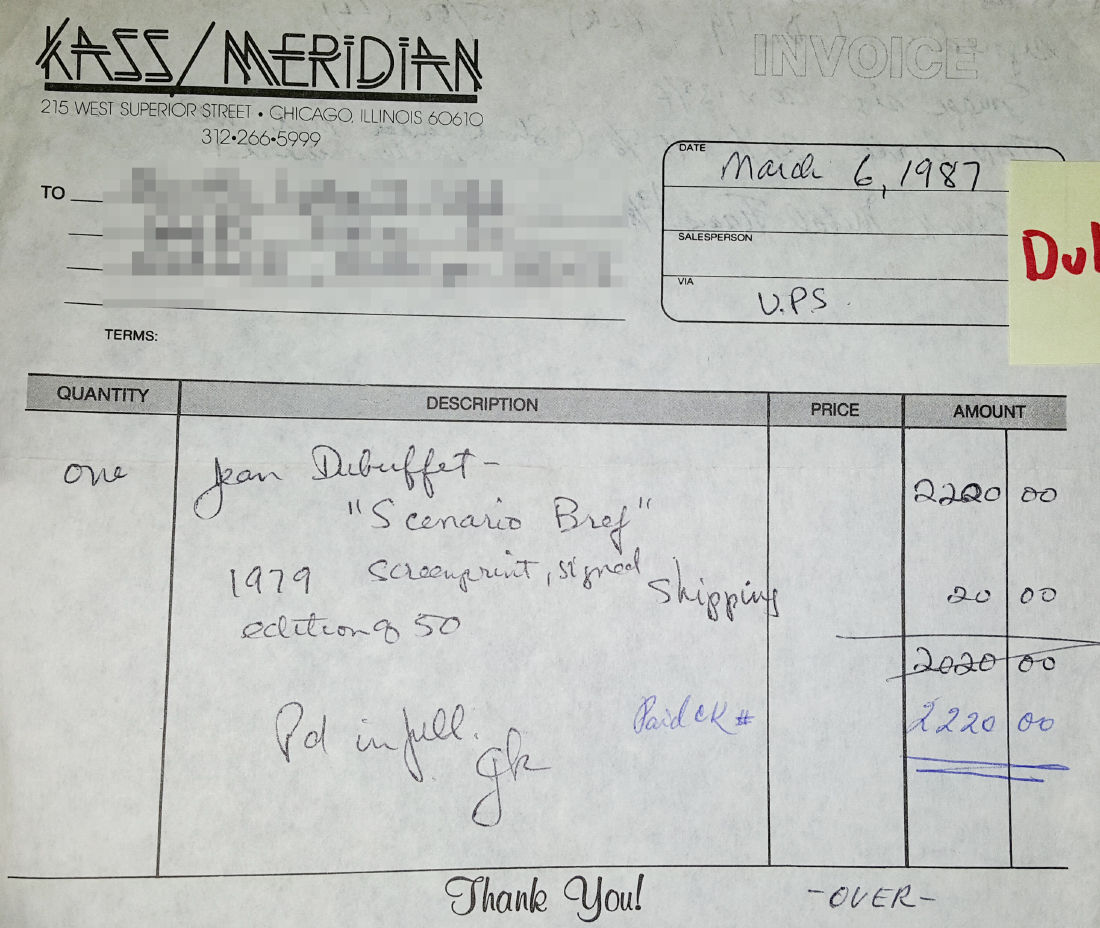 KASS/MERIDIAN
INVOICE
215 WEST SUPERIOR STREET • CHICAGO, ILLINOIS 60610
312•266•5999
DATE March 6, 1987
TO
SALESPERSON
VIA U.P.S.
Dub
TERMS:
QUANTITY DESCRIPTION PRICE AMOUNT
one Jean Dubuffet - 2220 00
"Scenario Bref"
1979 screenprint, signed
Shipping 20 00
edition of 50
2020 00
Pd in full. Paid CK # 2220 00
gk
Thank You! -OVER-